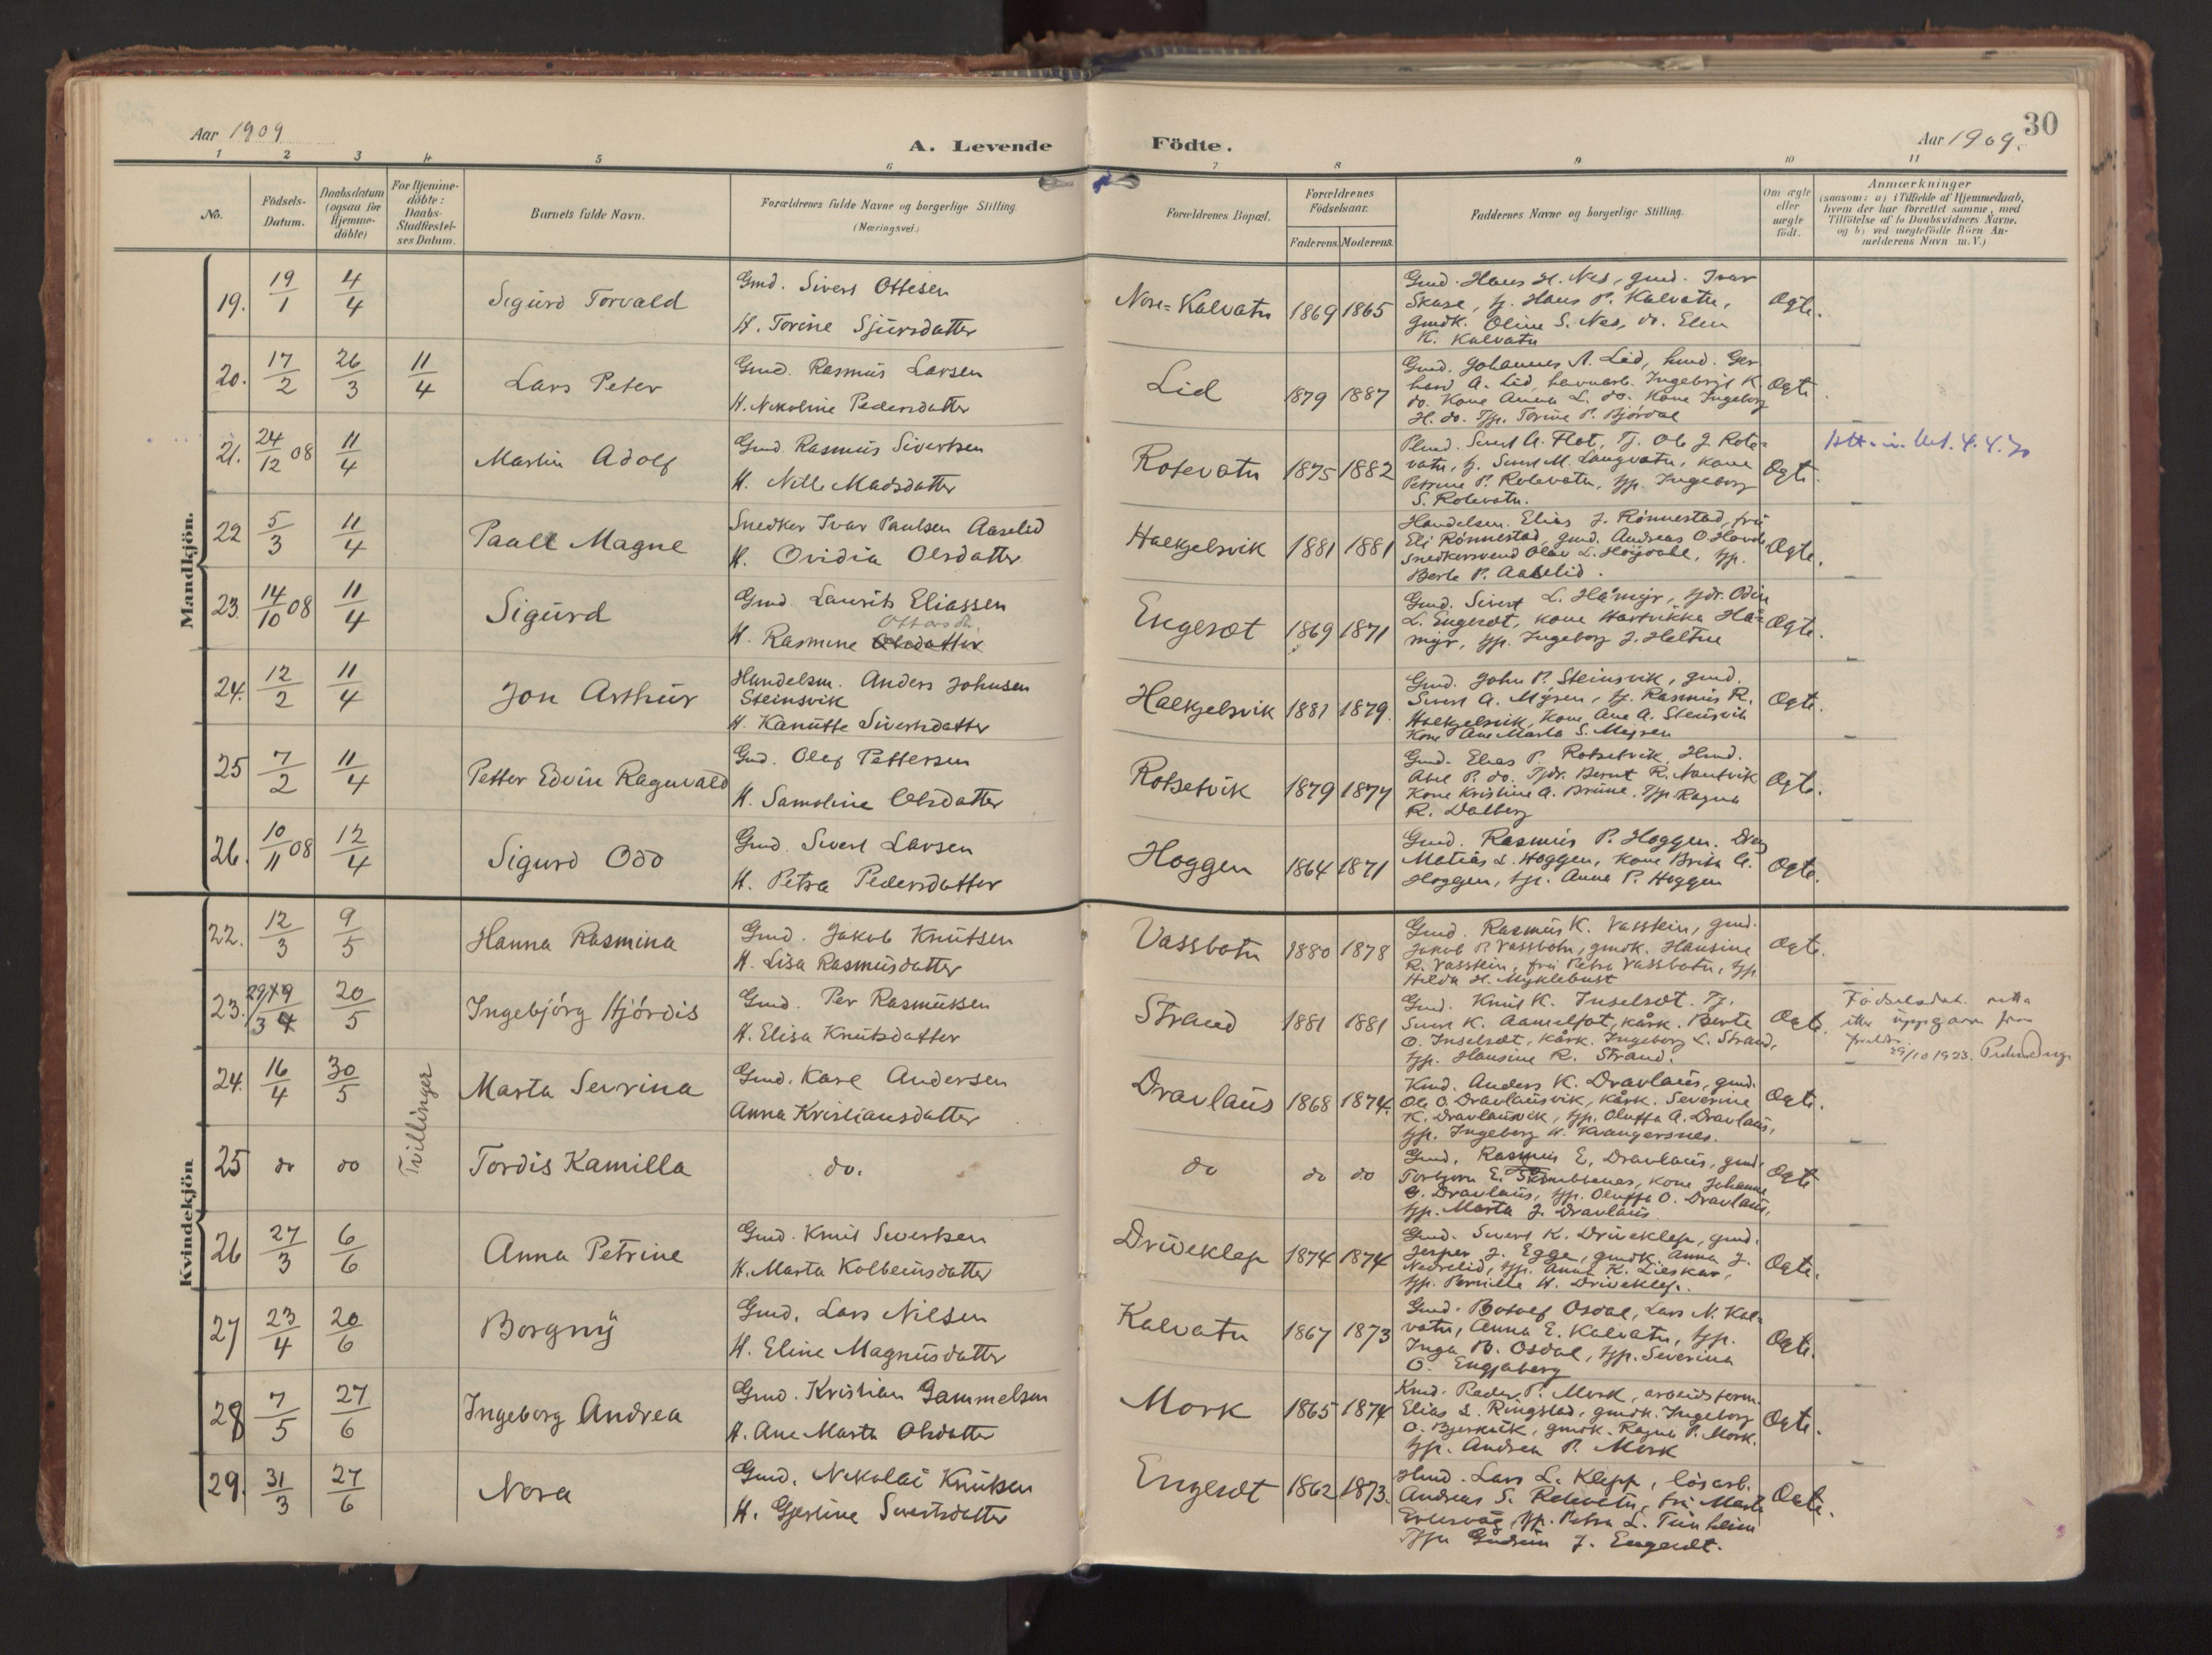 Aar 1909
A. Levende Födte.
Aar 1909.
30
1 2 3 4 5 6 7 8 9 10 11
No.
Födsels-
Datum.
Daabsdatum
(ogsaa for
Hjemme-
döbte)
For Hjemme-
döbte:
Daabs-
Stadfæstel-
ses Datum.
Barnets fulde Navn.
Forældrenes fulde Navne og borgerlige Stilling.
(Næringsvei.)
Forældrenes Bopæl.
Forældrenes
Födselsaar.
Faderens. Moderens.
Faddernes Navne og borgerlige Stilling.
Om ægte
eller
uægte
födt.
Anmærkninger
(saasom: a) i Tilfælde af Hjemmedaab,
hvem der har forrettet samme, med
Tilföielse af to Daabsvidners Navne,
og b) ved uægtefödte Börn An-
melderens Navn m. V.)
Mandkjön.
19. 19/1 4/4 Sigurd Torvald
Gmd. Sivert Ottesen
H. Torine Sjursdatter
Nore-Kalvatn 1869 1865
Gmd. Hans H. Nes, gmd. Ivar
Skare, tj. Hans P. Kalvatn,
gmdk. Oline S. Nes, do. Elen
K. Kalvatn
Ægte.
20. 17/2 26/3 11/4 Lars Peter
Gmd. Rasmus Larsen
H. Nikoline Pedersdatter
Lid 1879 1887
Gmd. Johannes A. Lid, hmd. Ger
hard A. Lid, havnarb. Ingebrigt K.
do. Kone Anna L. do. Kone Ingeborg
H. do. Tjp. Torine P. Bjørdal
Ægte.
21. 24/12 08 11/4 Martin Adolf
Gmd. Rasmus Sivertsen
H. Nille Madsdatter
Rotevatn 1875 1882
Sivert A. Flot, Tj. Ole J. Rote-
vatn, tj. Sivert M. Langvatn, kone
Petrine P. Rotevatn, tjp. Ingeborg
S. Rotevatn.
Ægte.
Att. 4.4.70
22 5/3 11/4 Paall Magne
Snedker Ivar Paulsen Aaselid
H. Ovidia Olsdatter
Halkjelsvik 1881 1881
Handelsm. Elias J. Rønnestad, fru
Eli Rønnestad, gmd. Andreas O. Hovde
snedkersvend Olav L. Høydahl, tjp.
Berte P. Aaselid.
Ægte.
23. 14/10 08 11/4 Sigurd
Gmd. Laurits Eliassen
Ottarsdtr.
H. Rasmine Olsdatter
Engeset 1869 1871
Gmd. Sivert L. Håmyr, tjdr. Odin
L. Engeset, kone Hartvikka Hå-
myr, tjp. Ingeborg J. Heltne
Ægte.
24. 12/2 11/4 Jon Arthur
Handelsm. Anders Johnsen
Steinsvik
H. Kanutte Sivertsdatter
Halkjelsvik 1881 1879.
Gmd. John P. Steinsvik, gmd.
Sivert A. Myren, tj. Rasmus R.
Halkjelsvik, kone Ane A. Steinsvik
Kone Ane Marta S. Myren
Ægte.
25 7/2 11/4 Petter Edvin Ragnvald
Gmd. Olaf Pettersen
H. Samoline Olsdatter
Rotsetvik 1879 1874
Gmd. Elias P. Rotsetvik, Hmd.
Abel P. do. Tjdr. Bernt R. Nautvik
Kone Kristine A. Brune. Tjp. Ragna
R. Dalberg
Ægte.
26. 10/11 08 12/4 Sigurd Odd
Gmd. Sivert Larsen
H. Petra Pedersdatter
Hoggen 1864 1871
Gmd. Rasmus P. Hoggen. Dreng
Matias L. Hoggen, kone Brita A.
Hoggen, tjp. Anna P. Hoggen
Ægte.
Kvindekjön
22. 12/3 9/5 Hanna Rasmina
Gmd. Jakob Knutsen
H. Lisa Rasmusdatter
Vassbotn 1880 1878
Gmd. Rasmus K. Vasstein, gmd.
Jakob P. Vassbotn, gmdk. Hansine
R. Vasstein, fru Petra Vassbotn, tjp.
Hilda H. Myklebust
Ægte.
23. 29/3 20/5 Ingebjørg Hjørdis
Gmd. Per Rasmussen
H. Elisa Knutsdatter
Strand 1881 1881
Gmd. Knut K. Inselset. Tj.
Sivert K. Aamelfot, kårk. Berte
O. Inselset, kårk. Ingeborg L. Strand,
tjp. Hansine R. Strand.
Ægte.
Fødselsdat. retta
etter uppgaave fraa
foreldri
29/10 1923.
Tvillinger
24. 16/4 30/5 Marta Sevrina
Gmd. Karl Andersen
Anna Kristiansdatter
Dravlaus 1868 1874.
Kmd. Anders K. Dravlaus, gmd.
Ole O. Dravlausvik, kårk. Severine
K. Dravlausvik, tjp. Oluffa A. Dravlaus,
tjp. Ingeborg H. Kvangersnes.
Ægte.
25 do do Tordis Kamilla
do.
do do do
Gmd. Rasmus E. Dravlaus, gmd.
Torbjørn E. Skrubbenes, kone Johanne
G. Dravlaus, tjp. Oluffa O. Dravlaus,
tjp. Marta J. Dravlaus
Ægte
26 27/3 6/6 Anna Petrine
Gmd. Knut Sivertsen
H. Marta Kolbeinsdatter
Driveklep 1874 1874
Gmd. Sivert K. Driveklep, gmd.
Jesper J. Egge, gmdk. Anna J.
Nedrelid, tjp. Anna K. Lieskar,
tjp. Pernille H. Driveklep.
Ægte.
27 23/4 20/6 Borgny
Gmd. Lars Nilsen
H. Eline Magnusdatter
Kalvatn 1867 1873
Gmd. Botolf Osdal, Lars N. Kal-
vatn, Anna E. Kalvatn, tjp.
Inga B. Osdal, tjp. Severina
O. Engjaberg
Ægte.
28 7/5 27/6 Ingeborg Andrea
Gmd. Kristian Gammelsen
H. Ane Marta Olsdatter
Mork 1865 1874
Kmd. Peder P. Mork, arbeidsform.
Elias L. Ringstad, gmdk. Ingeborg
O. Bjerkvik, gmdk. Ragna P. Mork.
tjp. Andrea P. Mork
Ægte.
29. 31/3 27/6 Nora
Gmd. Nikolai Knutsen
H. Gjertine Sivertsdatter
Engeset 1862 1873.
Hmd. Lars L. Klepp, løsarb.
Andreas S. Rotevatn, fru Marta
Eviksvåg, tjp. Petra L. Tunheim
Tjp. Gudrun J. Engeset.
Ægte.